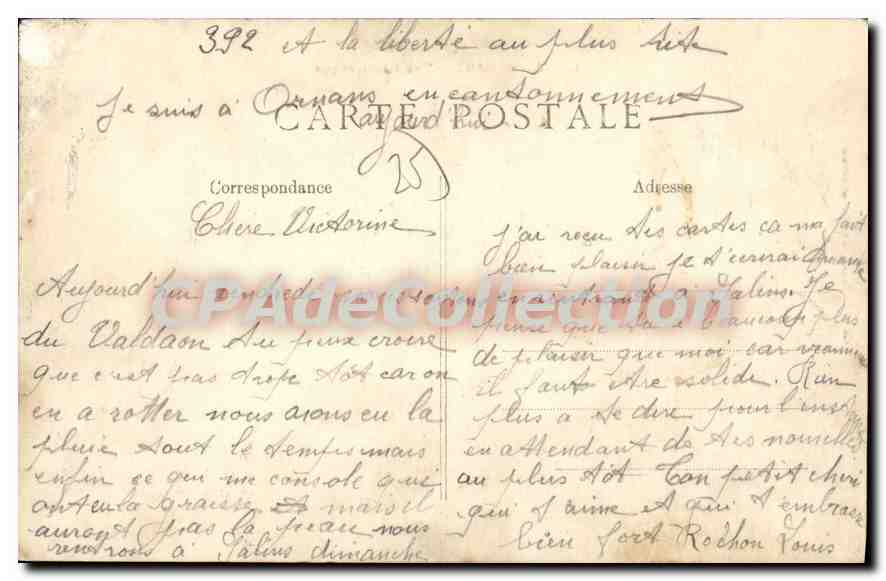 392 et la liberté au plus vite
Je suis à Ornans en cantonnement
aujourd'hui
CARTE POSTALE
25
Correspondance
Chere Victorine
Aujourd'hui vendredi nous
du Valdaon tu peux croire
que c'est pas drole tôt car on
en a nous avons eu la
pluie tout le temps mais
enfin ce qui me console qui
ont eu la graisse mais il
auront pas la peau nous
rentrons à Salins dimanche
Adresse
j'ai reçu tes cartes ça ma fait
bien plaisir je t'ecrirai quand
en rentrant à Salins. Je
pense que beaucoup plus
de plaisir que moi car vraiment
il faut etre solide. Rien
plus a te dire pour l'inst
en attendant de tes nouvelles
au plus tôt Ton petit cheri
qui t'aime et qui t'embrasse
bien fort Rochon Louis
CPAdeCollection.com